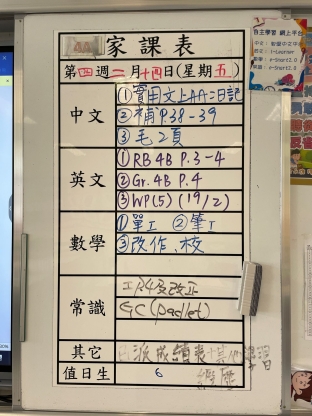 4A 家課表
第四週二月十四日(星期五)
中文
①實用文上AA二日記
②補P.38-39
③毛2頁
英文
①RB 4B P.3-4
②Gr. 4B P.4
③WP(5) (19/2)
數學
①單工 ②筆工
③改作、校
常識
GC(padlet)
其它
派成績表+其他學習
經歷
值日生
6
自主學習 網上平台